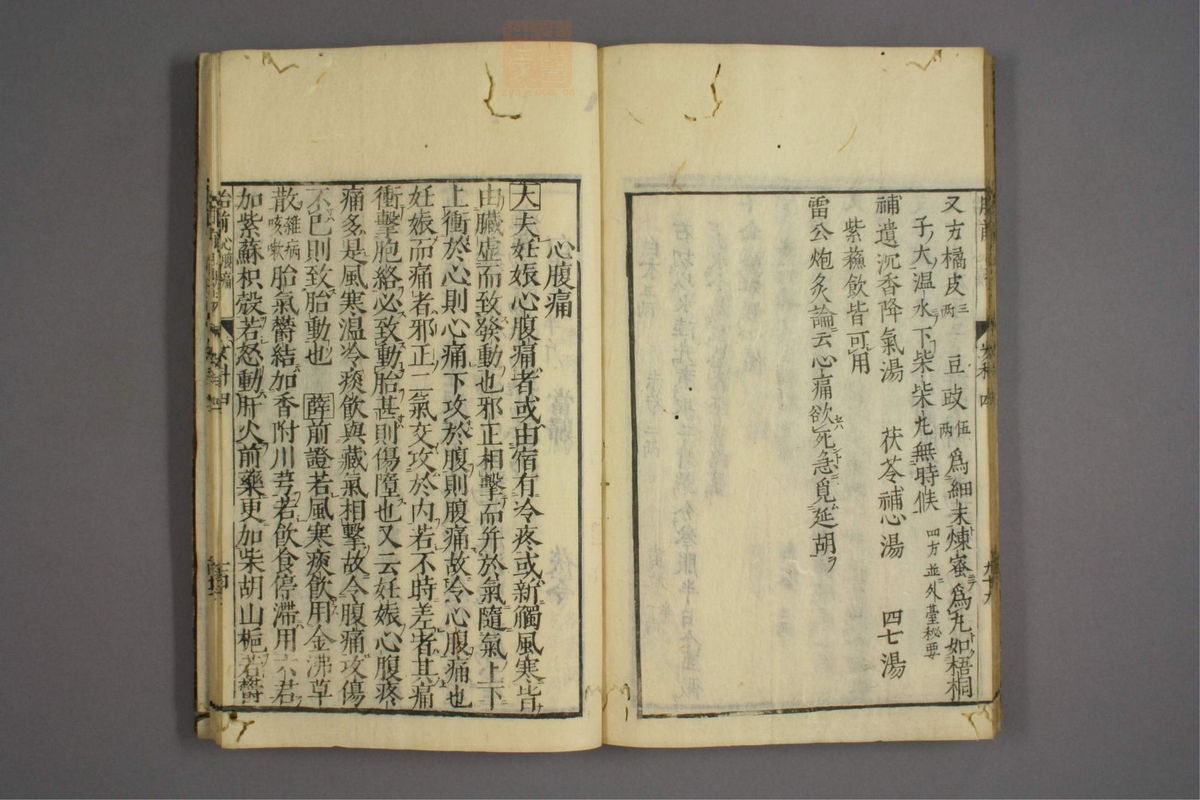 又方橘皮三兩 豆豉伍兩爲細末煉蜜爲丸如梧桐
子大温水下柒柒丸無時候 四方並外臺秘要
補遺沉香降氣湯 茯苓補心湯 四七湯
紫蘓飲皆可用
雷公炮炙論云心痛欲死急覓延胡ヲ
心腹痛
大夫妊娠心腹痛者或由宿有冷疼或新觸風寒皆
由臟虚而致發動也邪正相擊而并於氣隨氣上下
上衝於心則心痛下攻於腹則腹痛故令心腹痛也
妊娠而痛者邪正二氣交攻於内若不時差者其痛
衝擊胞絡必致動胎甚則傷隳也又云妊娠心腹疼
痛多是風寒温冷痰飲與藏氣相擊故令腹痛攻傷
不已則致胎動也 薛前證若風寒痰飲用金沸草
散雜病咳嗽胎氣欝結加香附川芎若飲食停滯用六君
加紫蘇枳殼若怒動肝火前藥更加柴胡山梔若欝
胎前心腹痛